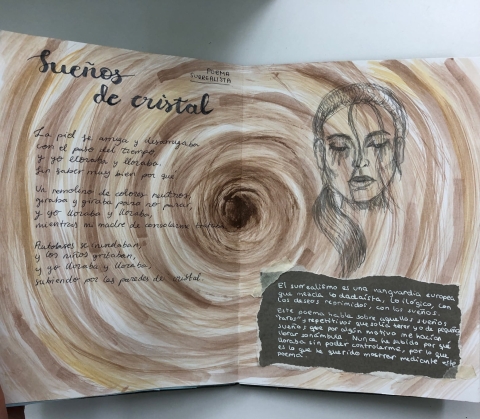 Sueños
de cristal
POEMA
SURREALISTA
La piel se arruga y desarrugaba
con el paso del tiempo
y yo lloraba y lloraba.
sin saber muy bien por qué.
Un remolino de colores neutros
giraba y giraba para no parar,
y yo lloraba y lloraba,
mientras mi madre de consolarme trataba
Autobuses se inundaban,
y los niños gritaban,
y yo lloraba y lloraba,
subiendo por las paredes de cristal
El surrealismo es una vanguardia europea
que mezcla lo dadaísta, lo ilógico, con
los deseos reprimidos, con los sueños.
Este poema habla sobre aquellos sueños
"raros" y repetitivos que solía tener yo de pequeña,
sueños que por algún motivo me hacían
llorar sonámbula. Nunca he sabido por qué
lloraba sin poder controlarme, por lo que
es lo que he querido mostrar mediante este
poema.